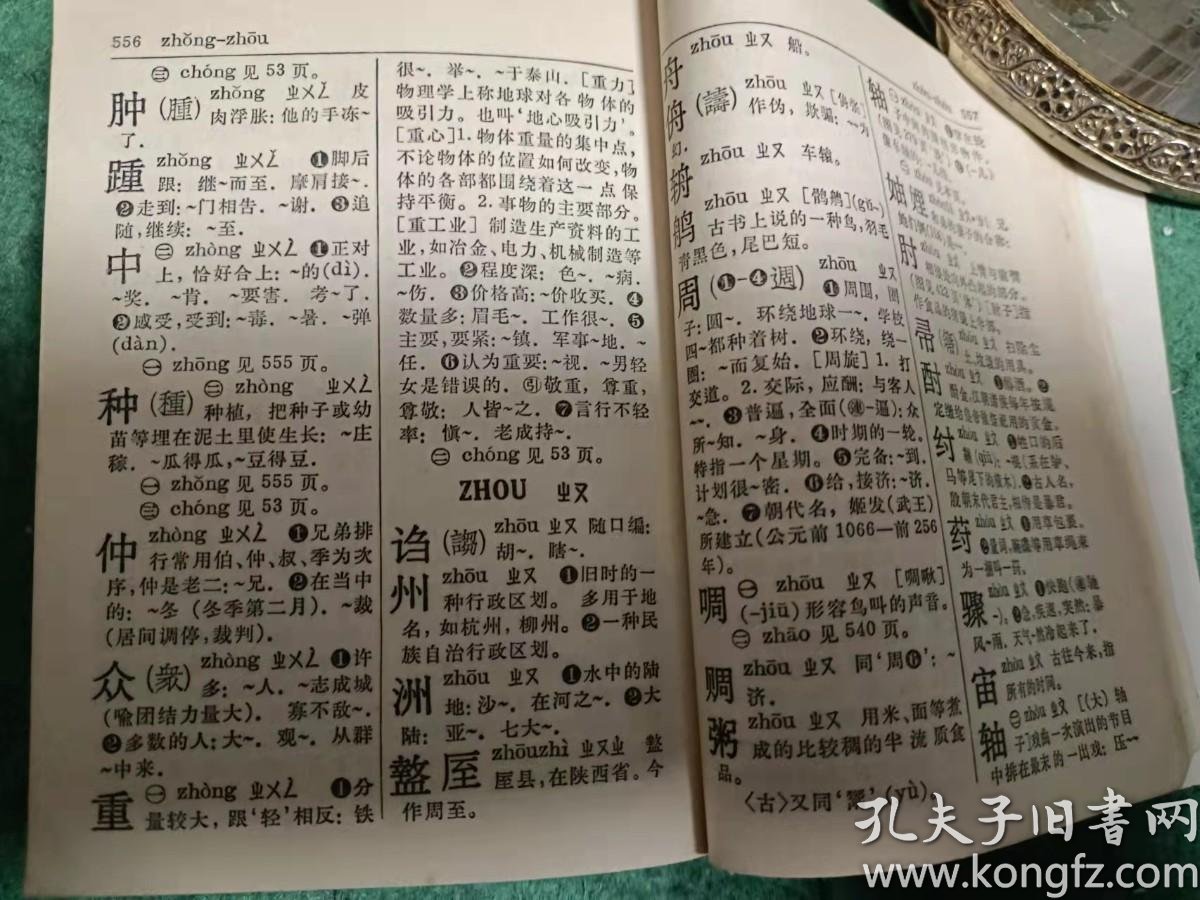 556 zhǒng–zhōu
㊂ chóng 见 53 页。
肿(腫) zhǒng ㄓㄨㄥˇ 皮
肉浮胀：他的手冻~
了．
踵 zhǒng ㄓㄨㄥˇ ❶脚后
跟：继~而至．摩肩接~．
❷走到：~门相告．~谢．❸追
随，继续：~至．
中 ㊁ zhòng ㄓㄨㄥˋ ❶正对
上，恰好合上：~的(dì)．
~奖．~肯．~要害．考~了．
❷感受，受到：~毒．~暑．~弹
(dàn)．
㊀ zhōng 见 555 页。
种(種) ㊁ zhòng ㄓㄨㄥˋ
种植，把种子或幼
苗等埋在泥土里使生长：~庄
稼．~瓜得瓜，~豆得豆．
㊀ zhǒng 见 555 页。
㊂ chóng 见 53 页。
仲 zhòng ㄓㄨㄥˋ ❶兄弟排
行常用伯、仲、叔、季为次
序，仲是老二：~兄．❷在当中
的：~冬（冬季第二月）．~裁
（居间调停，裁判）．
众(衆) zhòng ㄓㄨㄥˋ ❶许
多：~人．~志成城
（喻团结力量大）．寡不敌~．
❷多数的人：大~．观~．从群
~中来．
重 ㊀ zhòng ㄓㄨㄥˋ ❶分
量较大，跟‘轻’相反：铁
很~．举~．~于泰山．[重力]
物理学上称地球对各物体的
吸引力。也叫‘地心吸引力’。
[重心]1．物体重量的集中点，
不论物体的位置如何改变，物
体的各部都围绕着这一点保
持平衡。2．事物的主要部分。
[重工业] 制造生产资料的工
业，如冶金、电力、机械制造等
工业。❷程度深：色~．~病．
~伤．❸价格高：~价收买．❹
数量多：眉毛~．工作很~．❺
主要，要紧：~镇．军事~地．~
任．❻认为重要：~视．~男轻
女是错误的．㊣敬重，尊重，
尊敬：人皆~之．❼言行不轻
率：慎~．老成持~．
㊁ chóng 见 53 页。
ZHOU ㄓㄡ
诌(謅) zhōu ㄓㄡ 随口编：
胡~．瞎~．
州 zhōu ㄓㄡ ❶旧时的一
种行政区划。多用于地
名，如杭州，柳州。❷一种民
族自治行政区划。
洲 zhōu ㄓㄡ ❶水中的陆
地：沙~．在河之~．❷大
陆：亚~．七大~．
盩厔 zhōuzhì ㄓㄡㄓˋ 盩
厔县，在陕西省。今
作周至。
舟 zhōu ㄓㄡ 船。
侜(譸) zhōu ㄓㄡ [侜张]
作伪，欺骗：~~为
幻．
辀 zhōu ㄓㄡ 车辕。
鸼 zhōu ㄓㄡ [鹘鸼](gǔ-)
古书上说的一种鸟，羽毛
青黑色，尾巴短。
周(❶-❹週) zhōu ㄓㄡ
❶周围，圈
子：圆~．环绕地球一~．学校
四~都种着树．❷环绕，绕一
圈：~而复始．[周旋]1．打
交道。2．交际，应酬：与客人
~~．❸普遍，全面（㊥-遍）：众
所~知．~身．❹时期的一轮。
特指一个星期。❺完备：~到．
计划很~密．❻给，接济：~济．
~急．❼朝代名，姬发（武王）
所建立（公元前 1066—前 256
年）。
啁 ㊀ zhōu ㄓㄡ [啁啾]
(-jiū)形容鸟叫的声音。
㊁ zhāo 见 540 页。
赒 zhōu ㄓㄡ 同‘周❻’：~
济．
粥 zhōu ㄓㄡ 用米、面等煮
成的比较稠的半流质食
品。
〈古〉又同‘鬻’(yù)
557
轴
妯娌 zhóu
肘 zhǒu
帚(箒) zhǒu ㄓㄡˇ 扫除尘
土、垃圾的用具。
酎 zhòu
纣 zhòu ㄓㄡˋ ❶牲口的后
❷古人名，
殷朝末代君主，相传是暴君。
荮 zhòu ㄓㄡˋ ❶用草包裹。
❷量词，碗碟等用草绳束
为一捆叫一荮。
骤 zhòu ㄓㄡˋ ❶快跑
❷急，疾速，突然：暴
风~雨．天气~然冷起来了．
宙 zhòu ㄓㄡˋ 古往今来，指
所有的时间。
轴 ㊁ zhòu ㄓㄡˋ [（大）轴
子]戏曲一次演出的节目
中排在最末的一出戏：压~~
孔夫子旧书网
www.kongfz.com